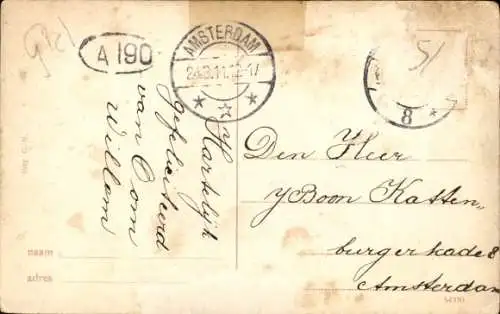 A 190
AMSTERDAM
24.3.11.12-1V
8
51
Hartelijk
gefeliciteerd
van Oom
Willem
Den Heer
Y Boon Katten-
burgerkade 8
Amsterdam
naam
adres